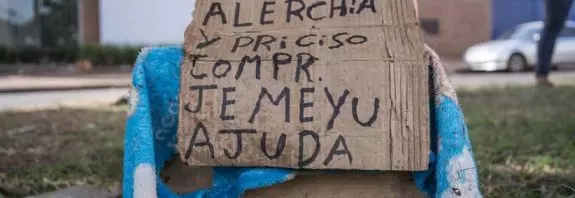 ALERCHIA
Y PRICISO
COMPR.
JEMEYU
AJUDA